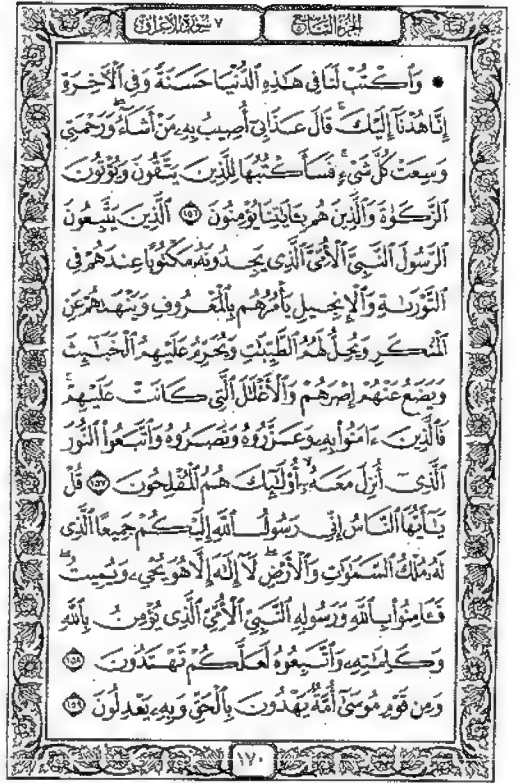 الجزء التاسع
٧ سورة الأعراف
۞ وَٱكۡتُبۡ لَنَا فِي هَٰذِهِ ٱلدُّنۡيَا حَسَنَةٗ وَفِي ٱلۡأٓخِرَةِ
إِنَّا هُدۡنَآ إِلَيۡكَۚ قَالَ عَذَابِيٓ أُصِيبُ بِهِۦ مَنۡ أَشَآءُۖ وَرَحۡمَتِي
وَسِعَتۡ كُلَّ شَيۡءٖۚ فَسَأَكۡتُبُهَا لِلَّذِينَ يَتَّقُونَ وَيُؤۡتُونَ
ٱلزَّكَوٰةَ وَٱلَّذِينَ هُم بِـَٔايَٰتِنَا يُؤۡمِنُونَ ١٥٦ ٱلَّذِينَ يَتَّبِعُونَ
ٱلرَّسُولَ ٱلنَّبِيَّ ٱلۡأُمِّيَّ ٱلَّذِي يَجِدُونَهُۥ مَكۡتُوبًا عِندَهُمۡ فِي
ٱلتَّوۡرَىٰةِ وَٱلۡإِنجِيلِ يَأۡمُرُهُم بِٱلۡمَعۡرُوفِ وَيَنۡهَىٰهُمۡ عَنِ
ٱلۡمُنكَرِ وَيُحِلُّ لَهُمُ ٱلطَّيِّبَٰتِ وَيُحَرِّمُ عَلَيۡهِمُ ٱلۡخَبَٰٓئِثَ
وَيَضَعُ عَنۡهُمۡ إِصۡرَهُمۡ وَٱلۡأَغۡلَٰلَ ٱلَّتِي كَانَتۡ عَلَيۡهِمۡۚ
فَٱلَّذِينَ ءَامَنُواْ بِهِۦ وَعَزَّرُوهُ وَنَصَرُوهُ وَٱتَّبَعُواْ ٱلنُّورَ
ٱلَّذِيٓ أُنزِلَ مَعَهُۥٓ أُوْلَٰٓئِكَ هُمُ ٱلۡمُفۡلِحُونَ ١٥٧ قُلۡ
يَٰٓأَيُّهَا ٱلنَّاسُ إِنِّي رَسُولُ ٱللَّهِ إِلَيۡكُمۡ جَمِيعًا ٱلَّذِي
لَهُۥ مُلۡكُ ٱلسَّمَٰوَٰتِ وَٱلۡأَرۡضِۖ لَآ إِلَٰهَ إِلَّا هُوَ يُحۡيِۦ وَيُمِيتُۖ
فَـَٔامِنُواْ بِٱللَّهِ وَرَسُولِهِ ٱلنَّبِيِّ ٱلۡأُمِّيِّ ٱلَّذِي يُؤۡمِنُ بِٱللَّهِ
وَكَلِمَٰتِهِۦ وَٱتَّبِعُوهُ لَعَلَّكُمۡ تَهۡتَدُونَ ١٥٨
وَمِن قَوۡمِ مُوسَىٰٓ أُمَّةٞ يَهۡدُونَ بِٱلۡحَقِّ وَبِهِۦ يَعۡدِلُونَ ١٥٩
١٧٠